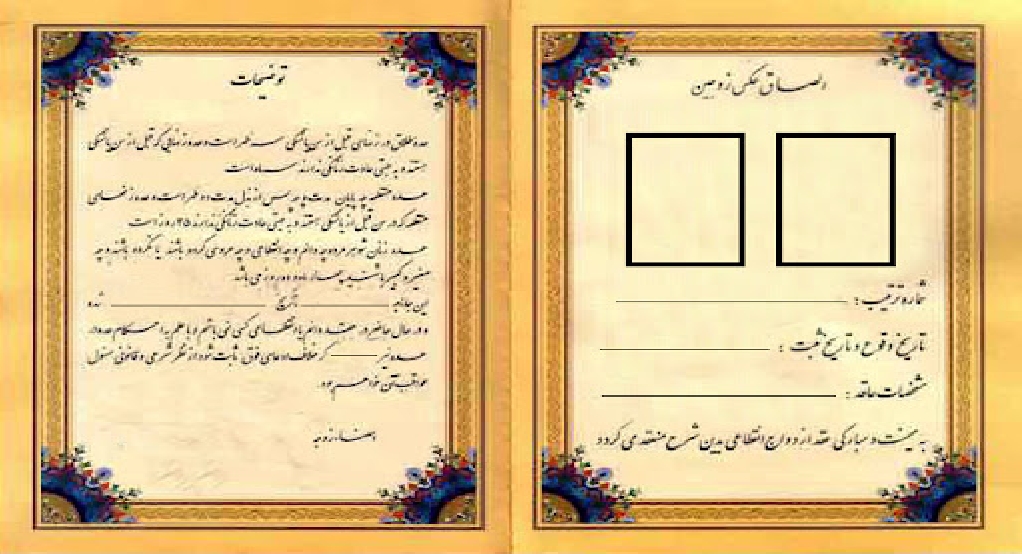 الصاق عکس زوجین
شماره ترتیب :
تاریخ وقوع و تاریخ ثبت :
مشخصات عاقد :
به میمنت و مبارکی عقد ازدواج انقطاعی بدین شرح منعقد می گردد
توضیحات
عده طلاق در زنهای قبل از سن یائسگی سه طهر است و عده زنهایی که قبل از سن یائسگی
هستند و به جهتی عادت زنانگی ندارند سه ماه است
عده منقطعه چه پایان مدت یا چه پس از بذل مدت دو طهر است و عده زنهای
منقطعه که در سن قبل از یائسگی هستند و به جهتی عادت زنانگی ندارند ۴۵ روز است
عده زنان شوهر مرده چه دائم و چه انقطاعی و چه عروسی کرده باشند یا نکرده باشند و چه
صغیر و کبیر باشند چهار ماه و ده روز می باشد
این جانبه تاریخ شده
و در حال حاضر در عقد دائم یا انقطاعی کسی نمی باشم و با علم به احکام عده در
عده نیز که خلاف ادعای فوق ثابت شود از نظر شرعی و قانونی مسئول
عواقب آن خواهم بود
امضاء زوجه